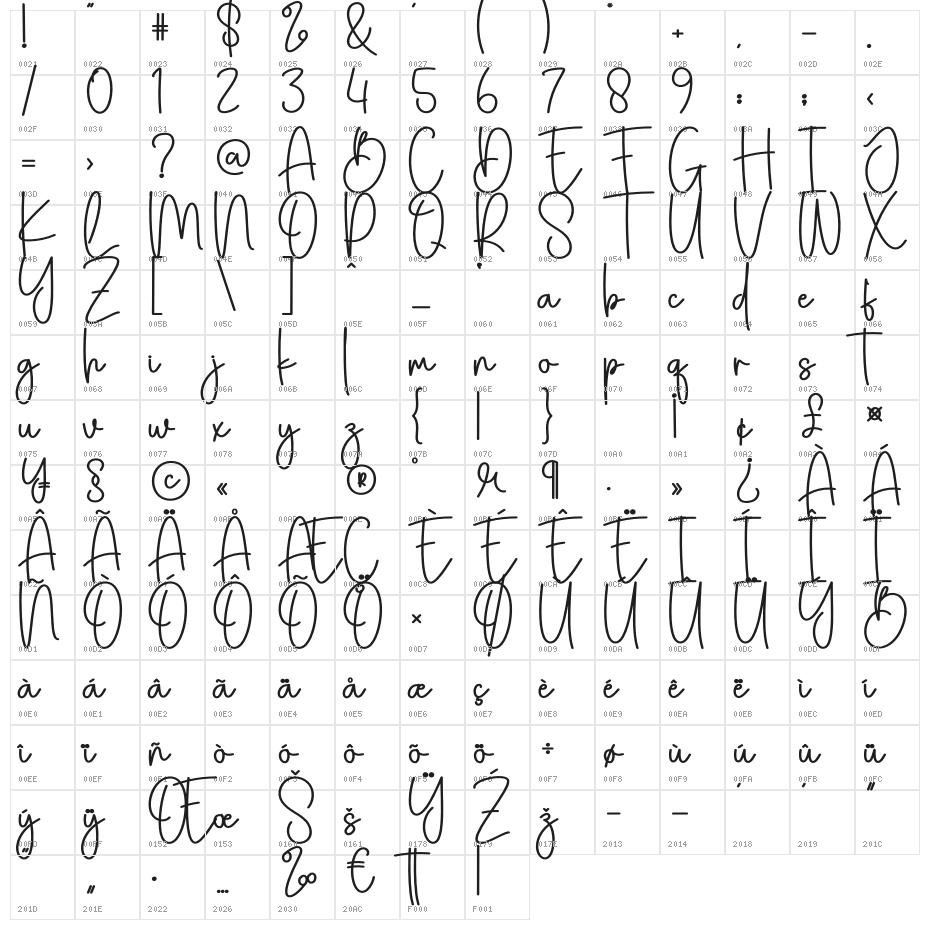 ! " # $ % & ' ( ) * + , - .
0021 0022 0023 0024 0025 0026 0027 0028 0029 002A 002B 002C 002D 002E
/ 0 1 2 3 4 5 6 7 8 9 : ; <
002F 0030 0031 0032 0033 0034 0035 0036 0037 0038 0039 003A 003B 003C
= > ? @ A B C D E F G H I J
003D 003E 003F 0040 0041 0042 0043 0044 0045 0046 0047 0048 0049 004A
K L M N O P Q R S T U V W X
004B 004C 004D 004E 004F 0050 0051 0052 0053 0054 0055 0056 0057 0058
Y Z [ \ ] ^ _ ` a b c d e f
0059 005A 005B 005C 005D 005E 005F 0060 0061 0062 0063 0064 0065 0066
g h i j k l m n o p q r s t
0067 0068 0069 006A 006B 006C 006D 006E 006F 0070 0071 0072 0073 0074
u v w x y z { | } ¡ ¢ £ ¤
0075 0076 0077 0078 0079 007A 007B 007C 007D 00A0 00A1 00A2 00A3 00A4
¥ § © « ® ° µ ¶ · » ¿ À Á
00A5 00A7 00A9 00AB 00AD 00AE 00B0 00B5 00B6 00B7 00BB 00BF 00C0 00C1
Â Ã Ä Å Æ Ç È É Ê Ë Ì Í Î Ï
00C2 00C3 00C4 00C5 00C6 00C7 00C8 00C9 00CA 00CB 00CC 00CD 00CE 00CF
Ñ Ò Ó Ô Õ Ö × Ø Ù Ú Û Ü Ý ß
00D1 00D2 00D3 00D4 00D5 00D6 00D7 00D8 00D9 00DA 00DB 00DC 00DD 00DF
à á â ã ä å æ ç è é ê ë ì í
00E0 00E1 00E2 00E3 00E4 00E5 00E6 00E7 00E8 00E9 00EA 00EB 00EC 00ED
î ï ñ ò ó ô õ ö ÷ ø ù ú û ü
00EE 00EF 00F1 00F2 00F3 00F4 00F5 00F6 00F7 00F8 00F9 00FA 00FB 00FC
ý ÿ Œ œ Š š Ÿ Ž ž – — ‘ ’ “
00FD 00FF 0152 0153 0160 0161 0178 0179 017E 2013 2014 2018 2019 201C
” „ • … ‰ €
201D 201E 2022 2026 2030 20AC F000 F001